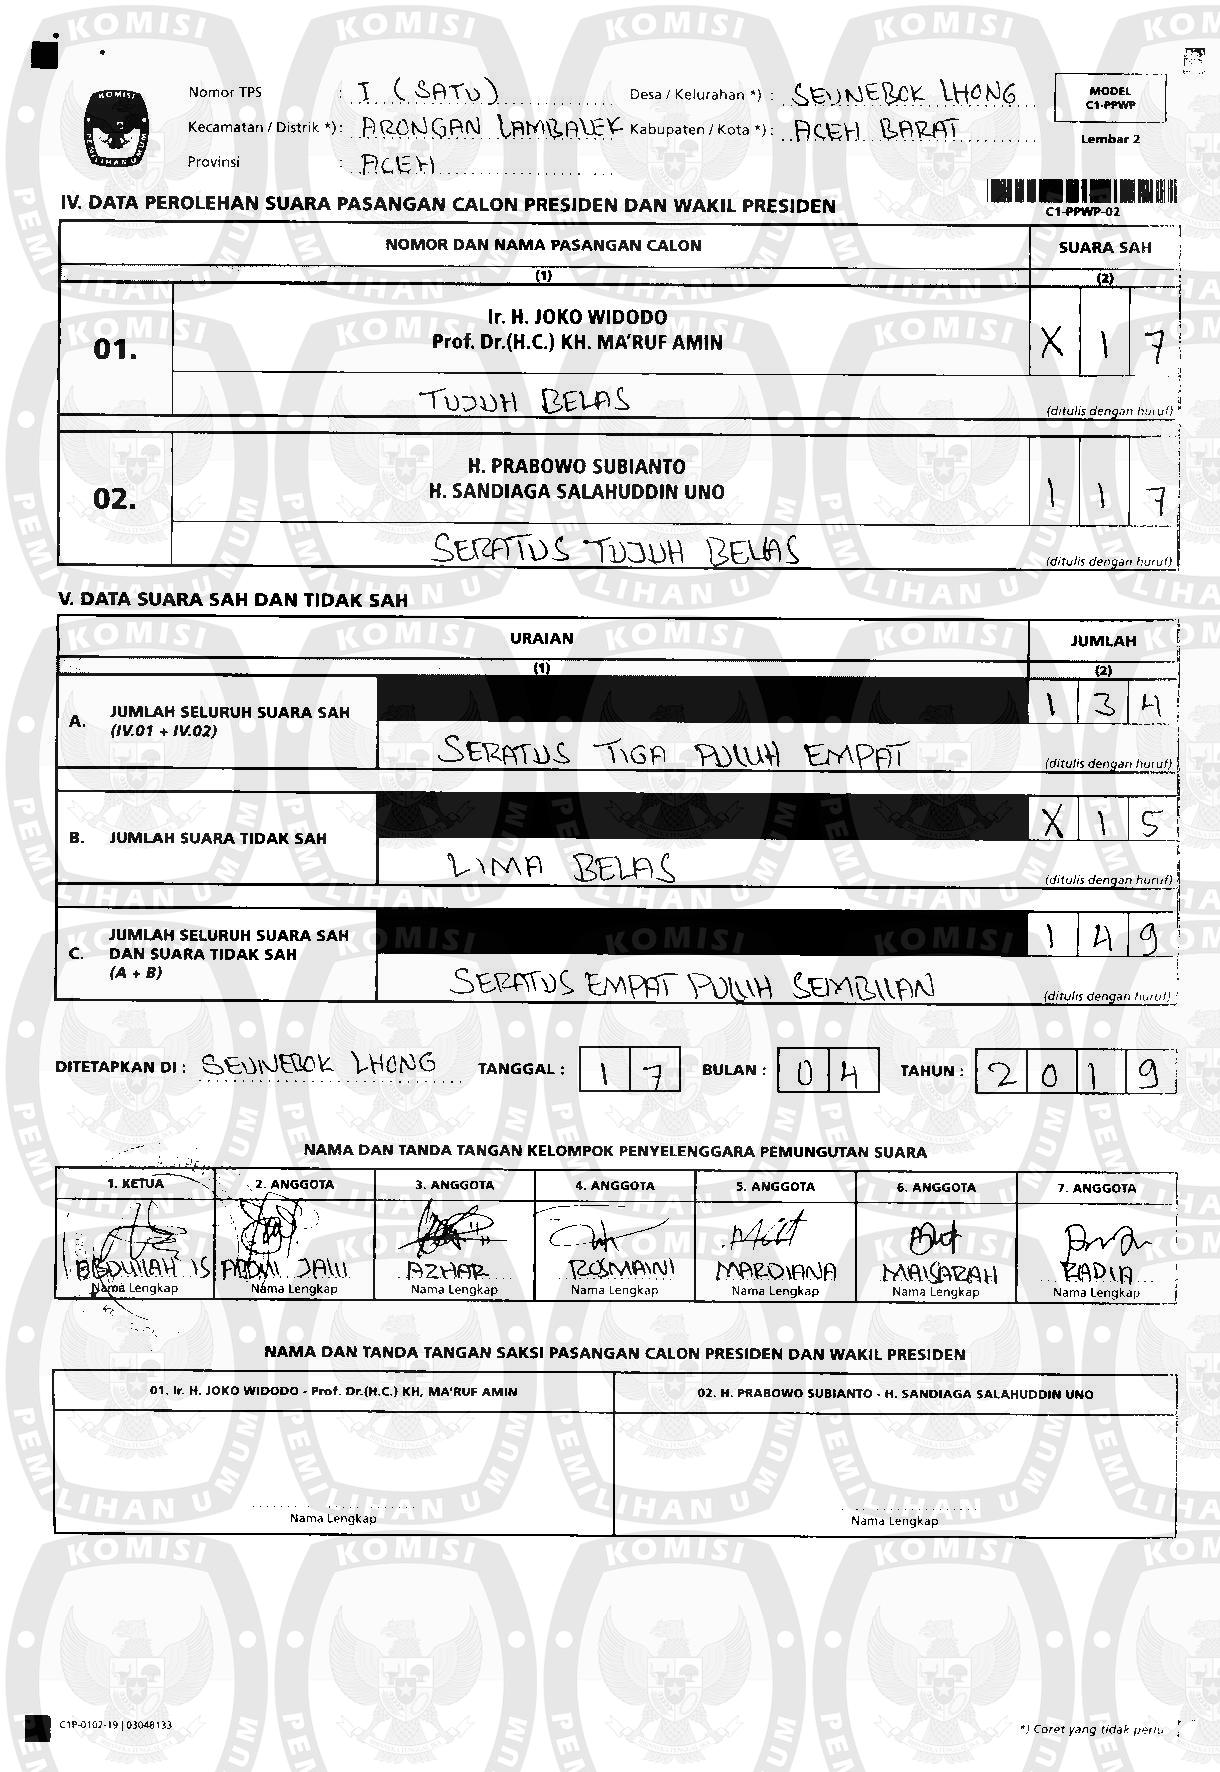 Nomor TPS : I (SATU) Desa / Kelurahan *) : SEUNEBOK LHONG
MODEL
C1-PPWP
Kecamatan / Distrik *) : ARONGAN LAMBALEK Kabupaten / Kota *) : ACEH BARAT
Lembar 2
Provinsi : ACEH
IV. DATA PEROLEHAN SUARA PASANGAN CALON PRESIDEN DAN WAKIL PRESIDEN
C1-PPWP-02
NOMOR DAN NAMA PASANGAN CALON SUARA SAH
(1) (2)
01. Ir. H. JOKO WIDODO
Prof. Dr.(H.C.) KH. MA'RUF AMIN X 1 7
TUJUH BELAS (ditulis dengan huruf)
02. H. PRABOWO SUBIANTO
H. SANDIAGA SALAHUDDIN UNO 1 1 7
SERATUS TUJUH BELAS (ditulis dengan huruf)
V. DATA SUARA SAH DAN TIDAK SAH
URAIAN JUMLAH
(1) (2)
A. JUMLAH SELURUH SUARA SAH
(IV.01 + IV.02) 1 3 4
SERATUS TIGA PULUH EMPAT (ditulis dengan huruf)
B. JUMLAH SUARA TIDAK SAH X 1 5
LIMA BELAS (ditulis dengan huruf)
C. JUMLAH SELURUH SUARA SAH
DAN SUARA TIDAK SAH
(A + B) 1 4 9
SERATUS EMPAT PULUH SEMBILAN (ditulis dengan huruf)
DITETAPKAN DI : SEUNEBOK LHONG TANGGAL : 1 7 BULAN : 0 4 TAHUN : 2 0 1 9
NAMA DAN TANDA TANGAN KELOMPOK PENYELENGGARA PEMUNGUTAN SUARA
1. KETUA 2. ANGGOTA 3. ANGGOTA 4. ANGGOTA 5. ANGGOTA 6. ANGGOTA 7. ANGGOTA
ABDULLAH IS JALIL AZHAR ROSMAINI MARDIANA MAISARAH RADIA
Nama Lengkap Nama Lengkap Nama Lengkap Nama Lengkap Nama Lengkap Nama Lengkap Nama Lengkap
NAMA DAN TANDA TANGAN SAKSI PASANGAN CALON PRESIDEN DAN WAKIL PRESIDEN
01. Ir. H. JOKO WIDODO - Prof. Dr.(H.C.) KH. MA'RUF AMIN 02. H. PRABOWO SUBIANTO - H. SANDIAGA SALAHUDDIN UNO
Nama Lengkap Nama Lengkap
C1P-0102-19 | 03048133
*) Coret yang tidak perlu